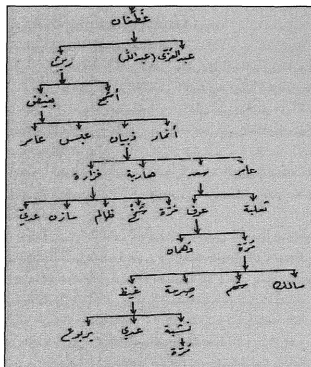 غطفان
عبد العزى (عبدالله) ريث
أشجع بغيض
أنمار ذبيان عبس عامر
عامر سعد هاربة فزارة
ثعلبة عوف مرة شمخ ظالم مازن عدي
مرة دهمان
مالك سهم صرمة غيظ
نشبة عدي يربوع
مرة